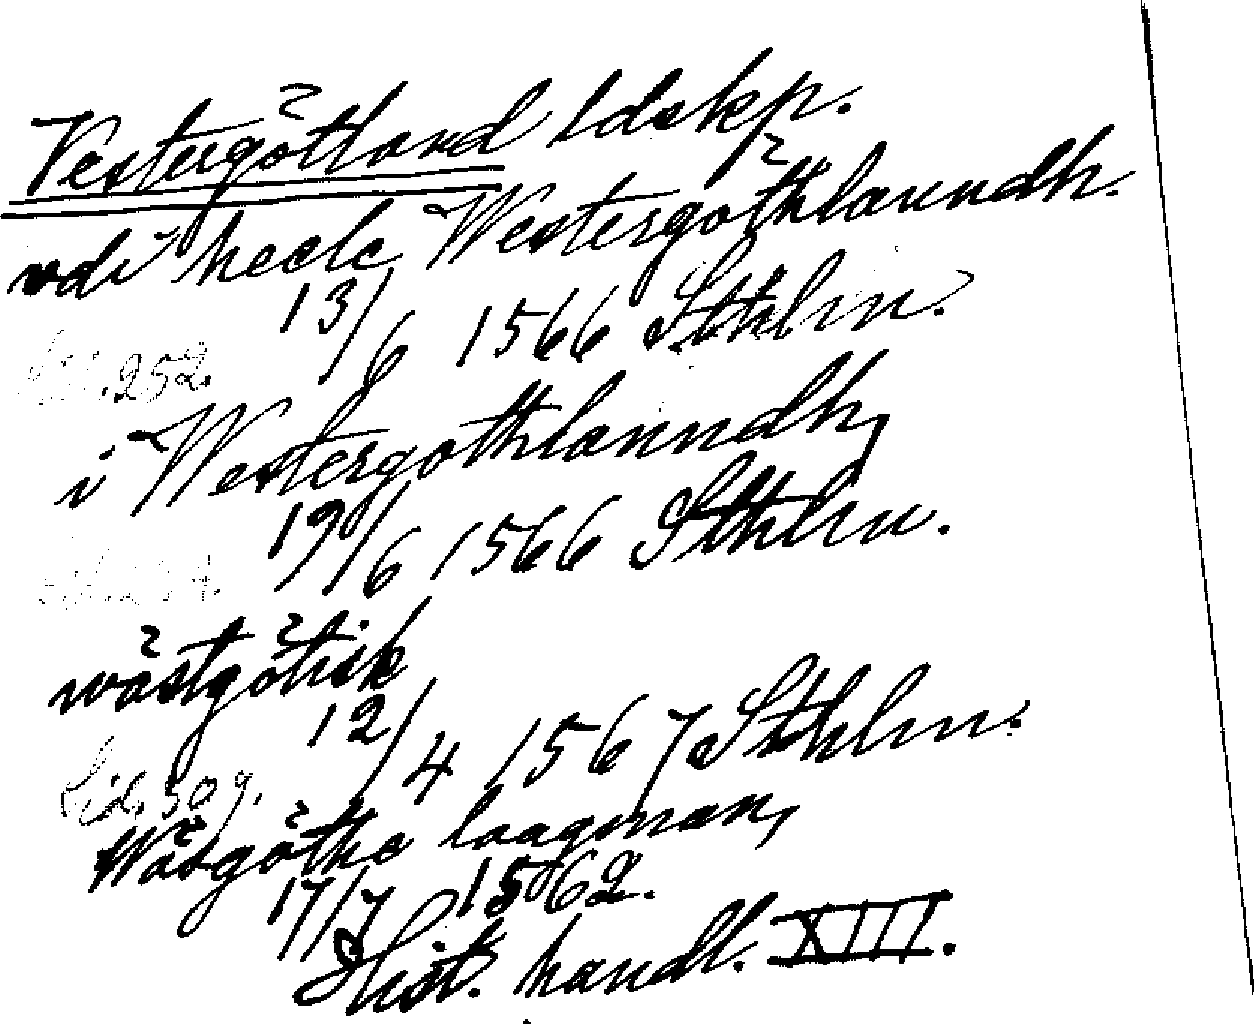 Vestergötland ldskp.
vdi heele Westergöthlanndh.
13/6 1566 Sthlm.
252.
i Westergothlanndh,
19/6 1566 Sthlm.
wästgötisk
12/4 1567 Sthlm.
Sid. 309.
Wäsgöthe laagman,
17/7 1562.
Hist. handl. XIII.